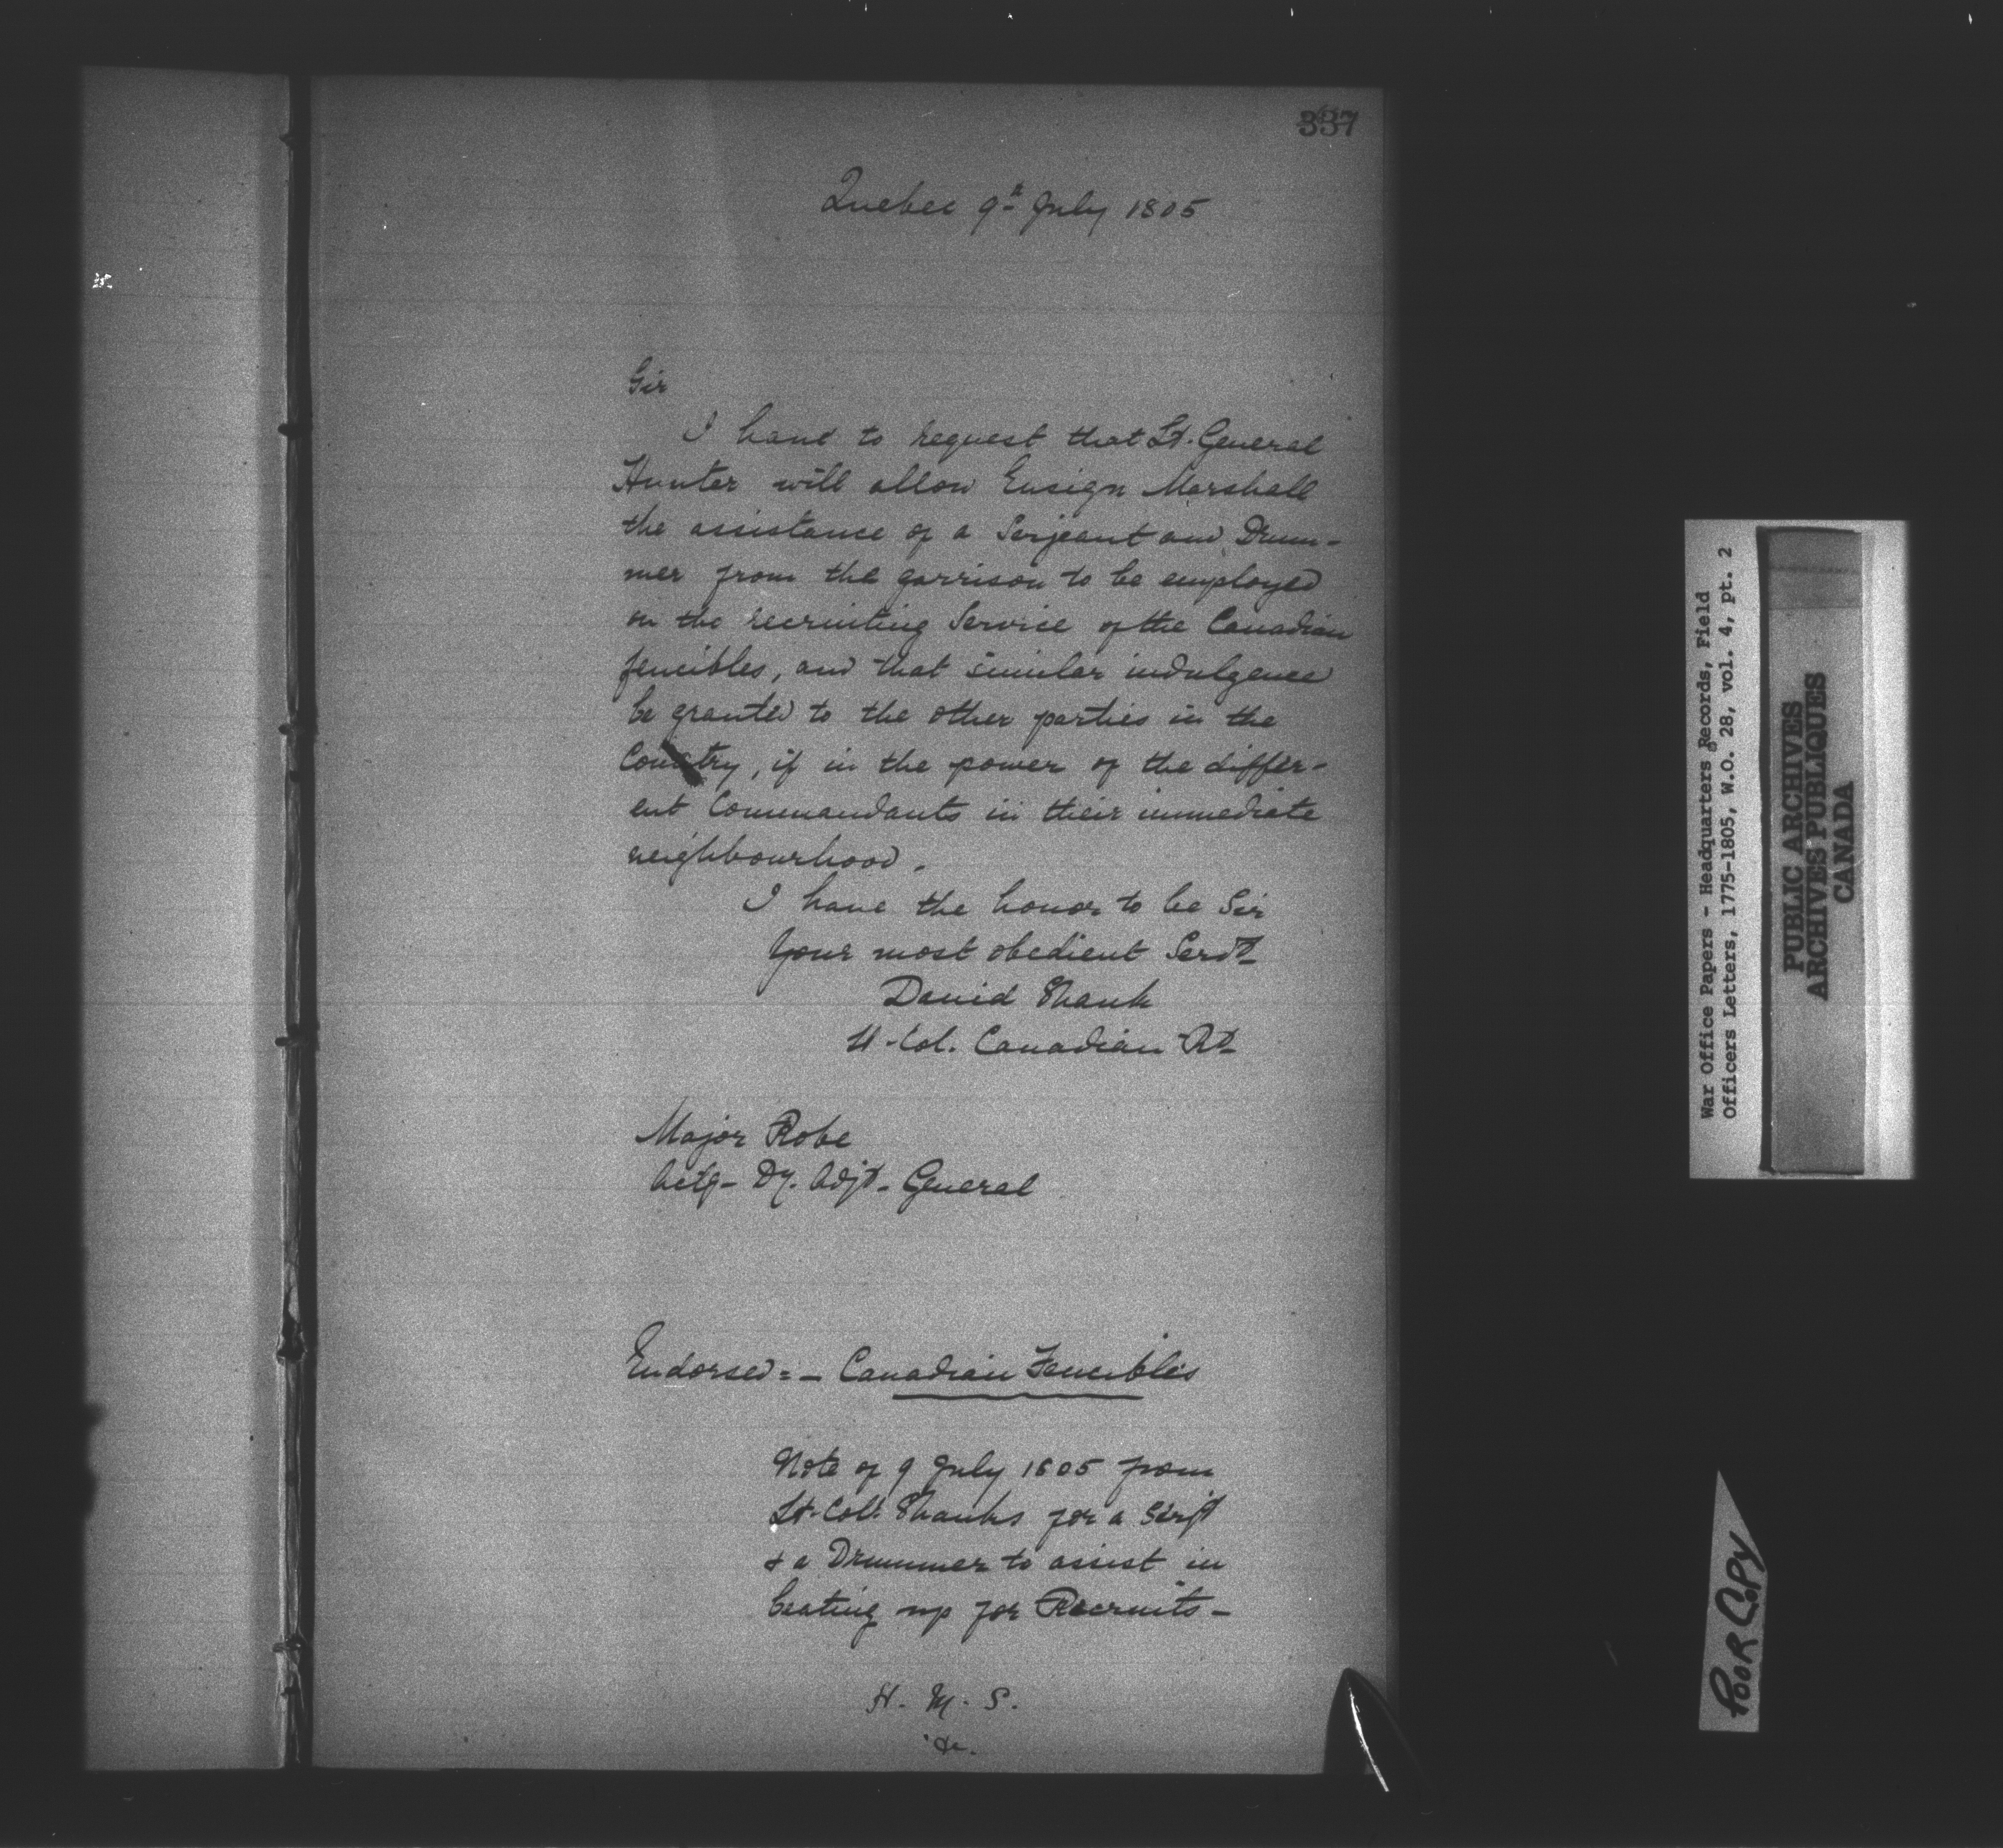 337
Quebec 9th July 1805
Sir
I have to request that Lt. General
Hunter will allow Ensign Marshall
the assistance of a Serjeant and Drum-
mer from the garrison to be employed
on the recruiting Service of the Canadian
fencibles, and that similar indulgence
be granted to the other parties in the
Country, if in the power of the differ-
ent Commandants in their immediate
neighbourhood.
I have the honor to be Sir
Your most obedient Servt
David Shank
Lt-Col. Canadian Rt
Major Robe
Actg- Dy. Adjt- General
Endorsed:- Canadian Fencibles
Note of 9 July 1805 from
Lt-Coll. Shanks for a Serjt
& a Drummer to assist in
beating up for Recruits-
H. M. S.
War Office Papers - Headquarters Records, Field
Officers Letters, 1775-1805, W.O. 28, vol. 4, pt. 2
PUBLIC ARCHIVES
ARCHIVES PUBLIQUES
CANADA
POOR COPY